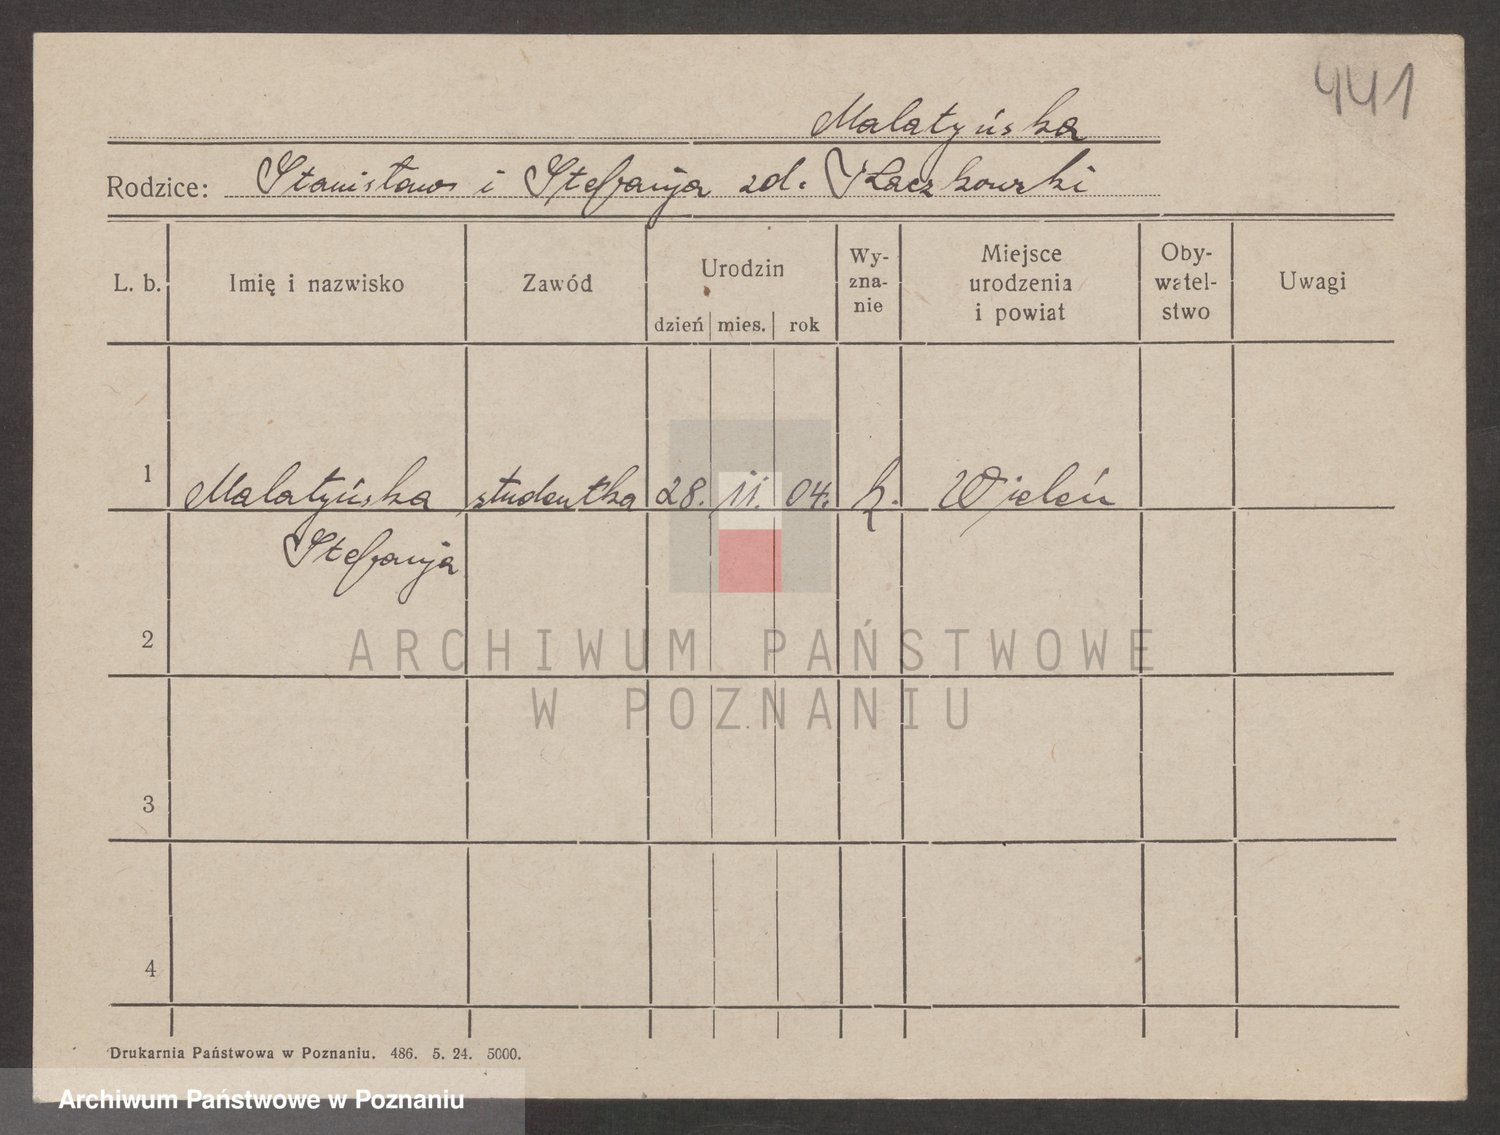 441
Malatyńska
Rodzice: Stanisław i Stefanja zd. Kaczkowski
L. b. Imię i nazwisko Zawód Urodzin dzień mies. rok Wy-zna-nie Miejsce urodzenia i powiat Oby-watel-stwo Uwagi
1 Malatyńska studentka 28. 11. 04. k. Wieleń
Stefanja
2
ARCHIWUM PAŃSTWOWE
W POZNANIU
3
4
Drukarnia Państwowa w Poznaniu. 486. 5. 24. 5000.
Archiwum Państwowe w Poznaniu